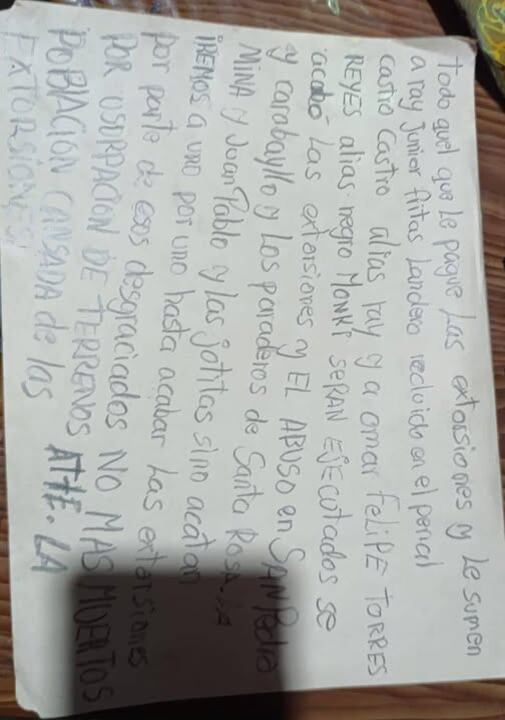 todo aquel que le pague las extorsiones y le sumen
a ray junior fritas Landero recluido en el penal
castro castro alias ray y a omar FELIPE TORRES
REYES alias negro MONKI SERAN EJECUTADOS se
acabó las extorsiones y EL ABUSO en SAN Pedro
y carabayllo y los paraderos de Santa Rosa...
MINA y Juan Pablo y las jotitas sino acatan
IREMOS a uno por uno hasta acabar las extorsiones
por parte de esos desgraciados NO MAS MUERTOS
POR USURPACION DE TERRENOS ATTE. LA
POBLACION CANSADA de las
EXTORSIONES!